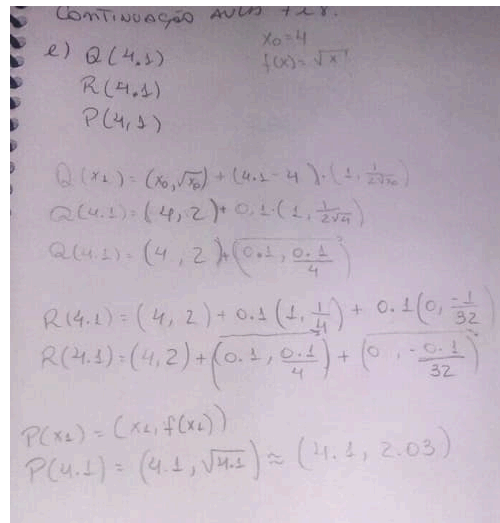 CONTINUAÇÃO AULAS 7 e 8.
x₀=4
e) Q(4.1)
f(x)=√x
R(4.1)
P(4,1)
Q(x₁)=(x₀,√x₀)+(4.1-4)·(1,1/(2√x₀))
Q(4.1)=(4,2)+0,1·(1,1/(2√4))
Q(4.1)=(4,2)+(0.1,0.1/4)
R(4.1)=(4,2)+0.1(1,1/4)+0.1(0,-1/32)
R(4.1)=(4,2)+(0.1,0.1/4)+(0,-0.1/32)
P(x₁)=(x₁,f(x₁))
P(4.1)=(4.1,√4.1)≈(4.1,2.03)